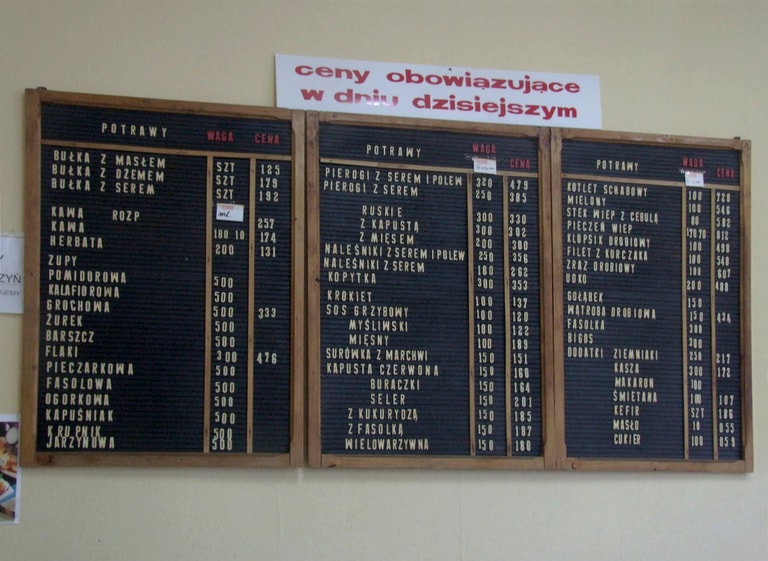 ceny obowiązujące
w dniu dzisiejszym
POTRAWY WAGA CENA
BUŁKA Z MASŁEM SZT 125
BUŁKA Z DŻEMEM SZT 179
BUŁKA Z SEREM SZT 192
KAWA ROZP ML 257
KAWA 180 10 174
HERBATA 200 131
ZUPY
POMIDOROWA 500
KALAFIOROWA 500
GROCHOWA 500 333
ŻUREK 500
BARSZCZ 500
FLAKI 300 476
PIECZARKOWA 500
FASOLOWA 500
OGORKOWA 500
KAPUŚNIAK 500
KRUPNIK 500
JARZYNOWA 500
POTRAWY WAGA CENA
PIEROGI Z SEREM I POLEW 320 479
PIEROGI Z SEREM 250 385
RUSKIE 300 330
Z KAPUSTĄ 300 302
Z MIĘSEM 200 300
NALEŚNIKI Z SEREM I POLEW 250 356
NALEŚNIKI Z SEREM 180 262
KOPYTKA 300 353
KROKIET 100 137
SOS GRZYBOWY 100 120
MYŚLIWSKI 100 122
MIĘSNY 100 109
SURÓWKA Z MARCHWI 150 151
KAPUSTA CZERWONA 150 160
BURACZKI 150 164
SELER 150 201
Z KUKURYDZĄ 150 185
Z FASOLKĄ 150 187
WIELOWARZYWNA 150 180
POTRAWY WAGA CENA
KOTLET SCHABOWY 100 728
MIELONY 100 546
STEK WIEP Z CEBULĄ 100
PIECZEŃ WIEP 80 592
KLOPSIK DROBIOWY
FILET Z KURCZAKA 100
ZRAZ DROBIOWY 100 607
UDKO 200 488
GOŁĄBEK 150
WĄTROBA DROBIOWA 150 434
FASOLKA
BIGOS 300
DODATKI ZIEMNIAKI 250 217
KASZA 300 172
MAKARON 100
ŚMIETANA 100 107
KEFIR SZT 186
MASŁO 10 055
CUKIER 100 058